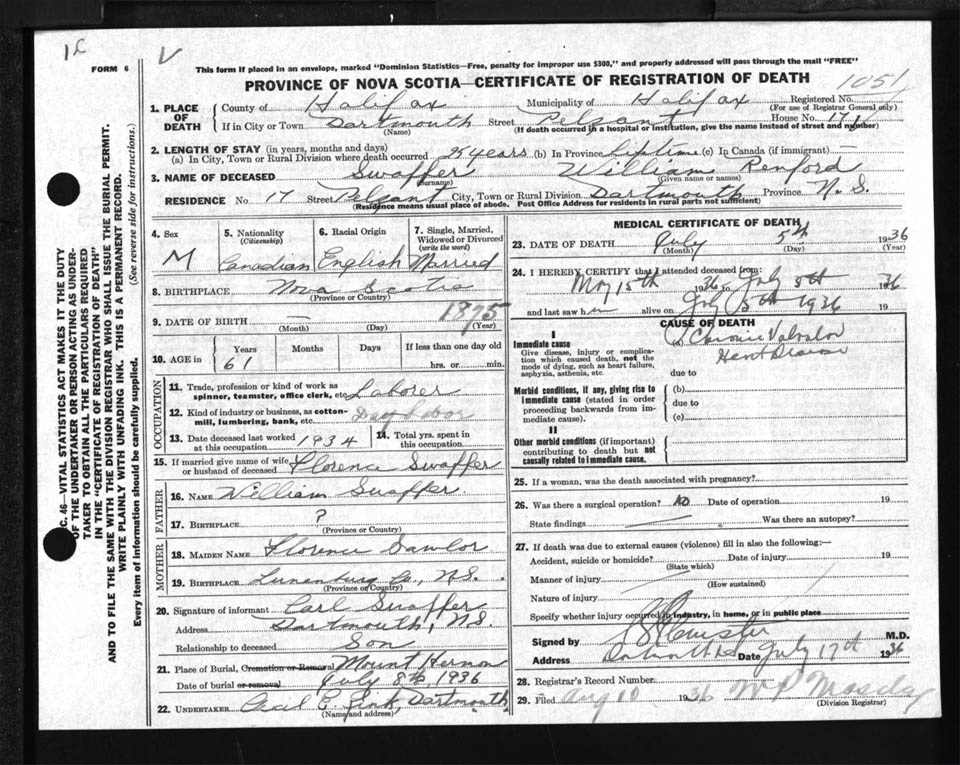 1c
V
FORM 6
This form if placed in an envelope, marked "Dominion Statistics—Free, penalty for improper use $300," and properly addressed will pass through the mail "FREE"
PROVINCE OF NOVA SCOTIA—CERTIFICATE OF REGISTRATION OF DEATH
1. PLACE OF DEATH
County of Halifax Municipality of Halifax Registered No. 1051
(For use of Registrar General only)
If in City or Town Dartmouth Street Pelsant House No. 17
(Name) (If death occurred in a hospital or institution, give the name instead of street and number)
2. LENGTH OF STAY (in years, months and days)
(a) In City, Town or Rural Division where death occurred 25 years (b) In Province Lifetime (c) In Canada (if immigrant)
3. NAME OF DECEASED Swaffer William Renford
(Surname) (Given name or names)
RESIDENCE No. 17 Street Pelsant City, Town or Rural Division Dartmouth Province N. S.
(Residence means usual place of abode. Post Office Address for residents in rural parts not sufficient)
4. Sex
M
5. Nationality
(Citizenship)
Canadian
6. Racial Origin
English
7. Single, Married, Widowed or Divorced
(write the word)
Married
8. BIRTHPLACE Nova Scotia
(Province or Country)
9. DATE OF BIRTH — 1875
(Month) (Day) (Year)
10. AGE in
Years Months Days If less than one day old
61 hrs. or min.
OCCUPATION
11. Trade, profession or kind of work as spinner, teamster, office clerk, etc. Laborer
12. Kind of industry or business, as cotton-mill, lumbering, bank, etc. Day Labor
13. Date deceased last worked at this occupation 1934
14. Total yrs. spent in this occupation
15. If married give name of wife or husband of deceased Florence Swaffer
FATHER
16. NAME William Swaffer
17. BIRTHPLACE ?
(Province or Country)
MOTHER
18. MAIDEN NAME Florence Sawlor
19. BIRTHPLACE Lunenburg Co., N.S.
(Province or Country)
20. Signature of informant Carl Swaffer
Address Dartmouth, N.S.
Relationship to deceased Son
21. Place of Burial, Cremation or Removal Mount Hermon
Date of burial or removal July 8th, 1936
22. UNDERTAKER Cecil E. Zink, Dartmouth
(Name and address)
MEDICAL CERTIFICATE OF DEATH
23. DATE OF DEATH July 5th 1936
(Month) (Day) (Year)
24. I HEREBY CERTIFY that I attended deceased from:
May 15th 1936 to July 5th 1936
and last saw him alive on July 5th 1936 19
CAUSE OF DEATH
I
Immediate cause
Give disease, injury or complication which caused death, not the mode of dying, such as heart failure, asphyxia, asthenia, etc.
(a) Chronic Valvular
Heart Disease
due to
Morbid conditions, if any, giving rise to immediate cause (stated in order proceeding backwards from immediate cause).
(b)
due to
(c)
II
Other morbid conditions (if important) contributing to death but not causally related to immediate cause.
25. If a woman, was the death associated with pregnancy?
26. Was there a surgical operation? no Date of operation 19
State findings Was there an autopsy?
27. If death was due to external causes (violence) fill in also the following:—
Accident, suicide or homicide? Date of injury 19
(State which)
Manner of injury
(How sustained)
Nature of injury
Specify whether injury occurred in industry, in home, or in public place
Signed by M.D.
Address Date July 17th 1936
28. Registrar's Record Number
29. Filed Aug 10 1936
(Division Registrar)
C. 46—VITAL STATISTICS ACT MAKES IT THE DUTY
OF THE UNDERTAKER OR PERSON ACTING AS UNDER-
TAKER TO OBTAIN ALL THE PARTICULARS REQUIRED
IN THE "CERTIFICATE OF REGISTRATION OF DEATH"
AND TO FILE THE SAME WITH THE DIVISION REGISTRAR WHO SHALL ISSUE THE BURIAL PERMIT.
WRITE PLAINLY WITH UNFADING INK. THIS IS A PERMANENT RECORD.
Every item of information should be carefully supplied. (See reverse side for instructions.)